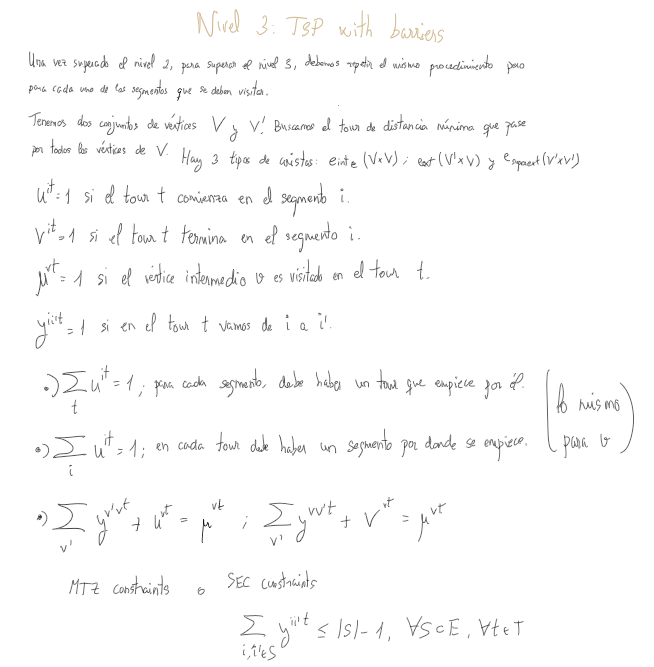 Nivel 3: TSP with barriers
Una vez superado el nivel 2, para superar el nivel 3, debemos repetir el mismo procedimiento pero
para cada uno de los segmentos que se deben visitar.
Tenemos dos conjuntos de vértices V y V'. Buscamos el tour de distancia mínima que pase
por todos los vértices de V. Hay 3 tipos de aristas: e int e (V×V) ; ext (V'×V) y e (V'×V')
u^{it} = 1 si el tour t comienza en el segmento i.
v^{it} = 1 si el tour t termina en el segmento i.
μ^{vt} = 1 si el vértice intermedio v es visitado en el tour t.
y^{ii't} = 1 si en el tour t vamos de i a i'.
•) ∑_t u^{it} = 1 ; para cada segmento, debe haber un tour que empiece por él. (lo mismo
•) ∑_i u^{it} = 1 ; en cada tour debe haber un segmento por donde se empiece. para v)
•) ∑_{v'} y^{v'vt} + u^{vt} = μ^{vt} ; ∑_{v'} y^{vv't} + v^{vt} = μ^{vt}
MTZ constraints o SEC constraints
∑_{i,i'∈S} y^{ii't} ≤ |S| - 1, ∀S⊂E, ∀t∈T